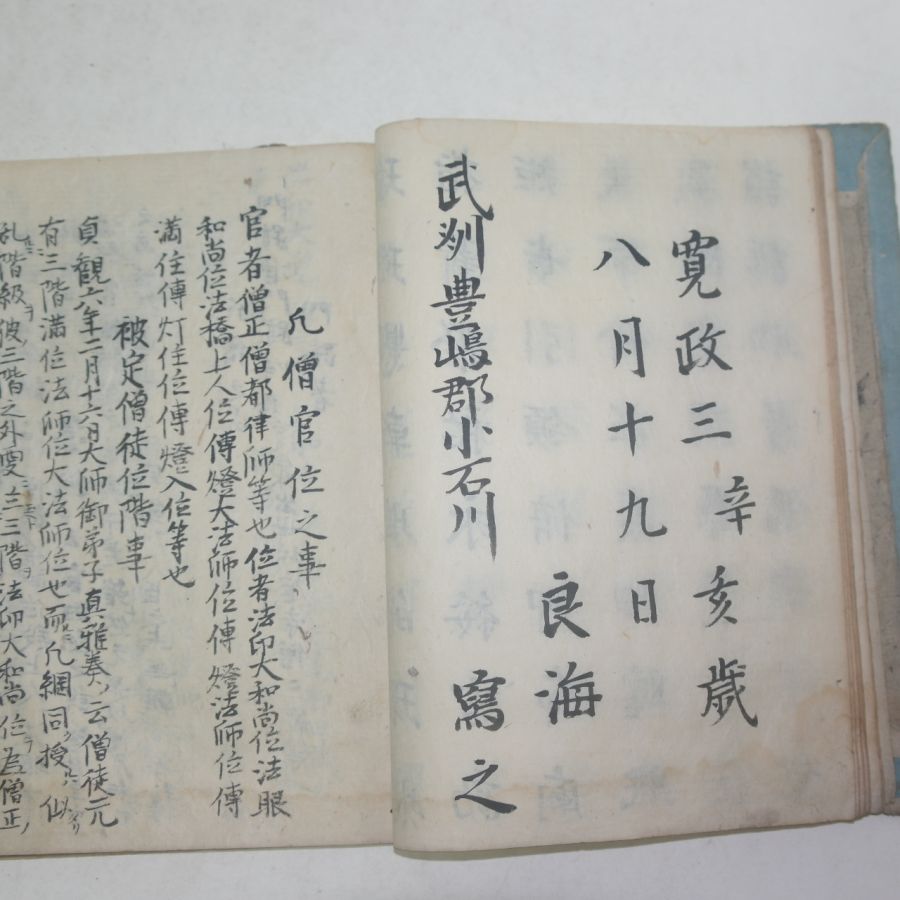 寛政三辛亥歳
八月十九日
良海
武刕豊嶋郡小石川
寫之
凢僧官位之事
官者僧正僧都律師等也位者法印大和尚位法眼
和尚位法橋上人位傳燈大法師位傳燈法師位傳
満住傳灯住位傳燈入位等也
被定僧徒位階事
貞観六年二月十六月大師御弟子真雅奏ﾝ云僧徒元
有三階満位法師位大法師位也而凢網同授仙
乱階級彼三階之外更立三階法印大和尚位為僧正